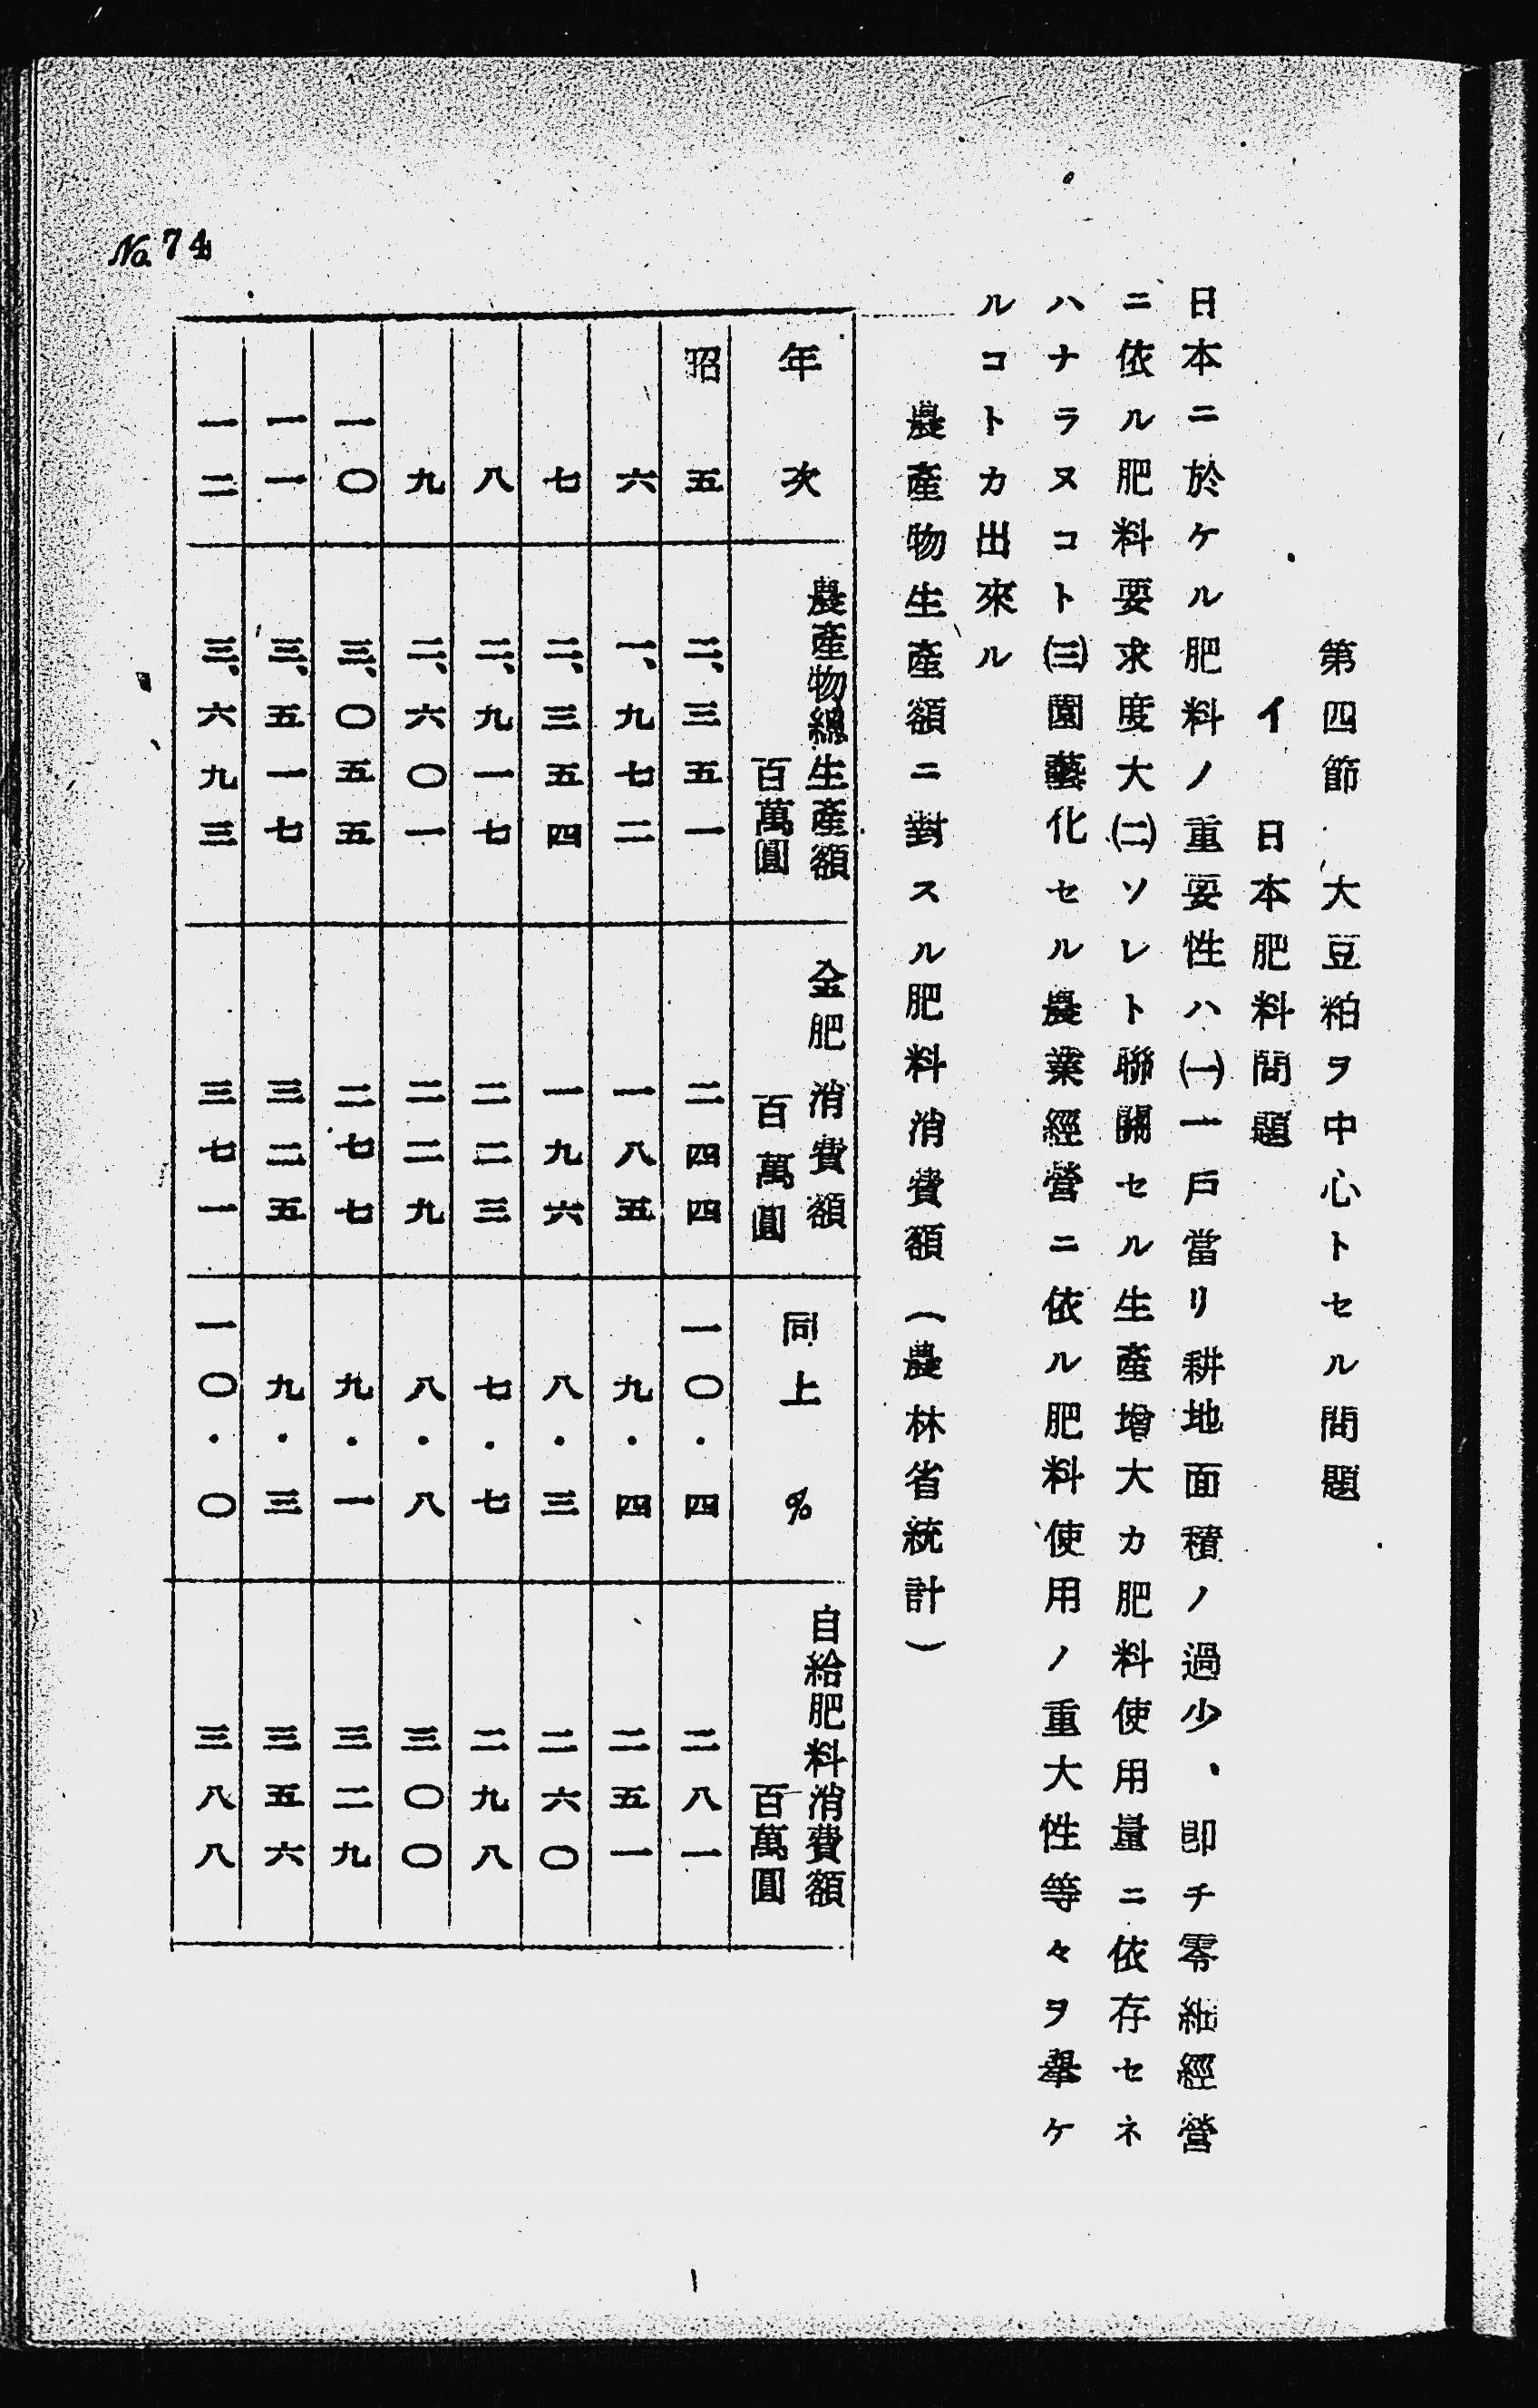 第四節　大豆粕ヲ中心トセル問題
イ　日本肥料問題
日本ニ於ケル肥料ノ重要性ハ㈠一戶當リ耕地面積ノ過少、卽チ零細經營
ニ依ル肥料要求度大㈡ソレト聯關セル生產增大カ肥料使用量ニ依存セネ
ハナラヌコト㈢園藝化セル農業經營ニ依ル肥料使用ノ重大性等々ヲ擧ケ
ルコトカ出來ル
農產物生產額ニ對スル肥料消費額（農林省統計）
年次　農產物總生產額百萬圓　金肥消費額百萬圓　同上％　自給肥料消費額百萬圓
昭五　二、三五一　二四四　一〇・四　二八一
六　一、九七二　一八五　九・四　二五一
七　二、三五四　一九六　八・三　二六〇
八　二、九一七　二二三　七・七　二九八
九　二、六〇一　二二九　八・八　三〇〇
一〇　三、〇五五　二七七　九・一　三二九
一一　三、五一七　三二五　九・三　三五六
一二　三、六九三　三七一　一〇・〇　三八八
No. 74